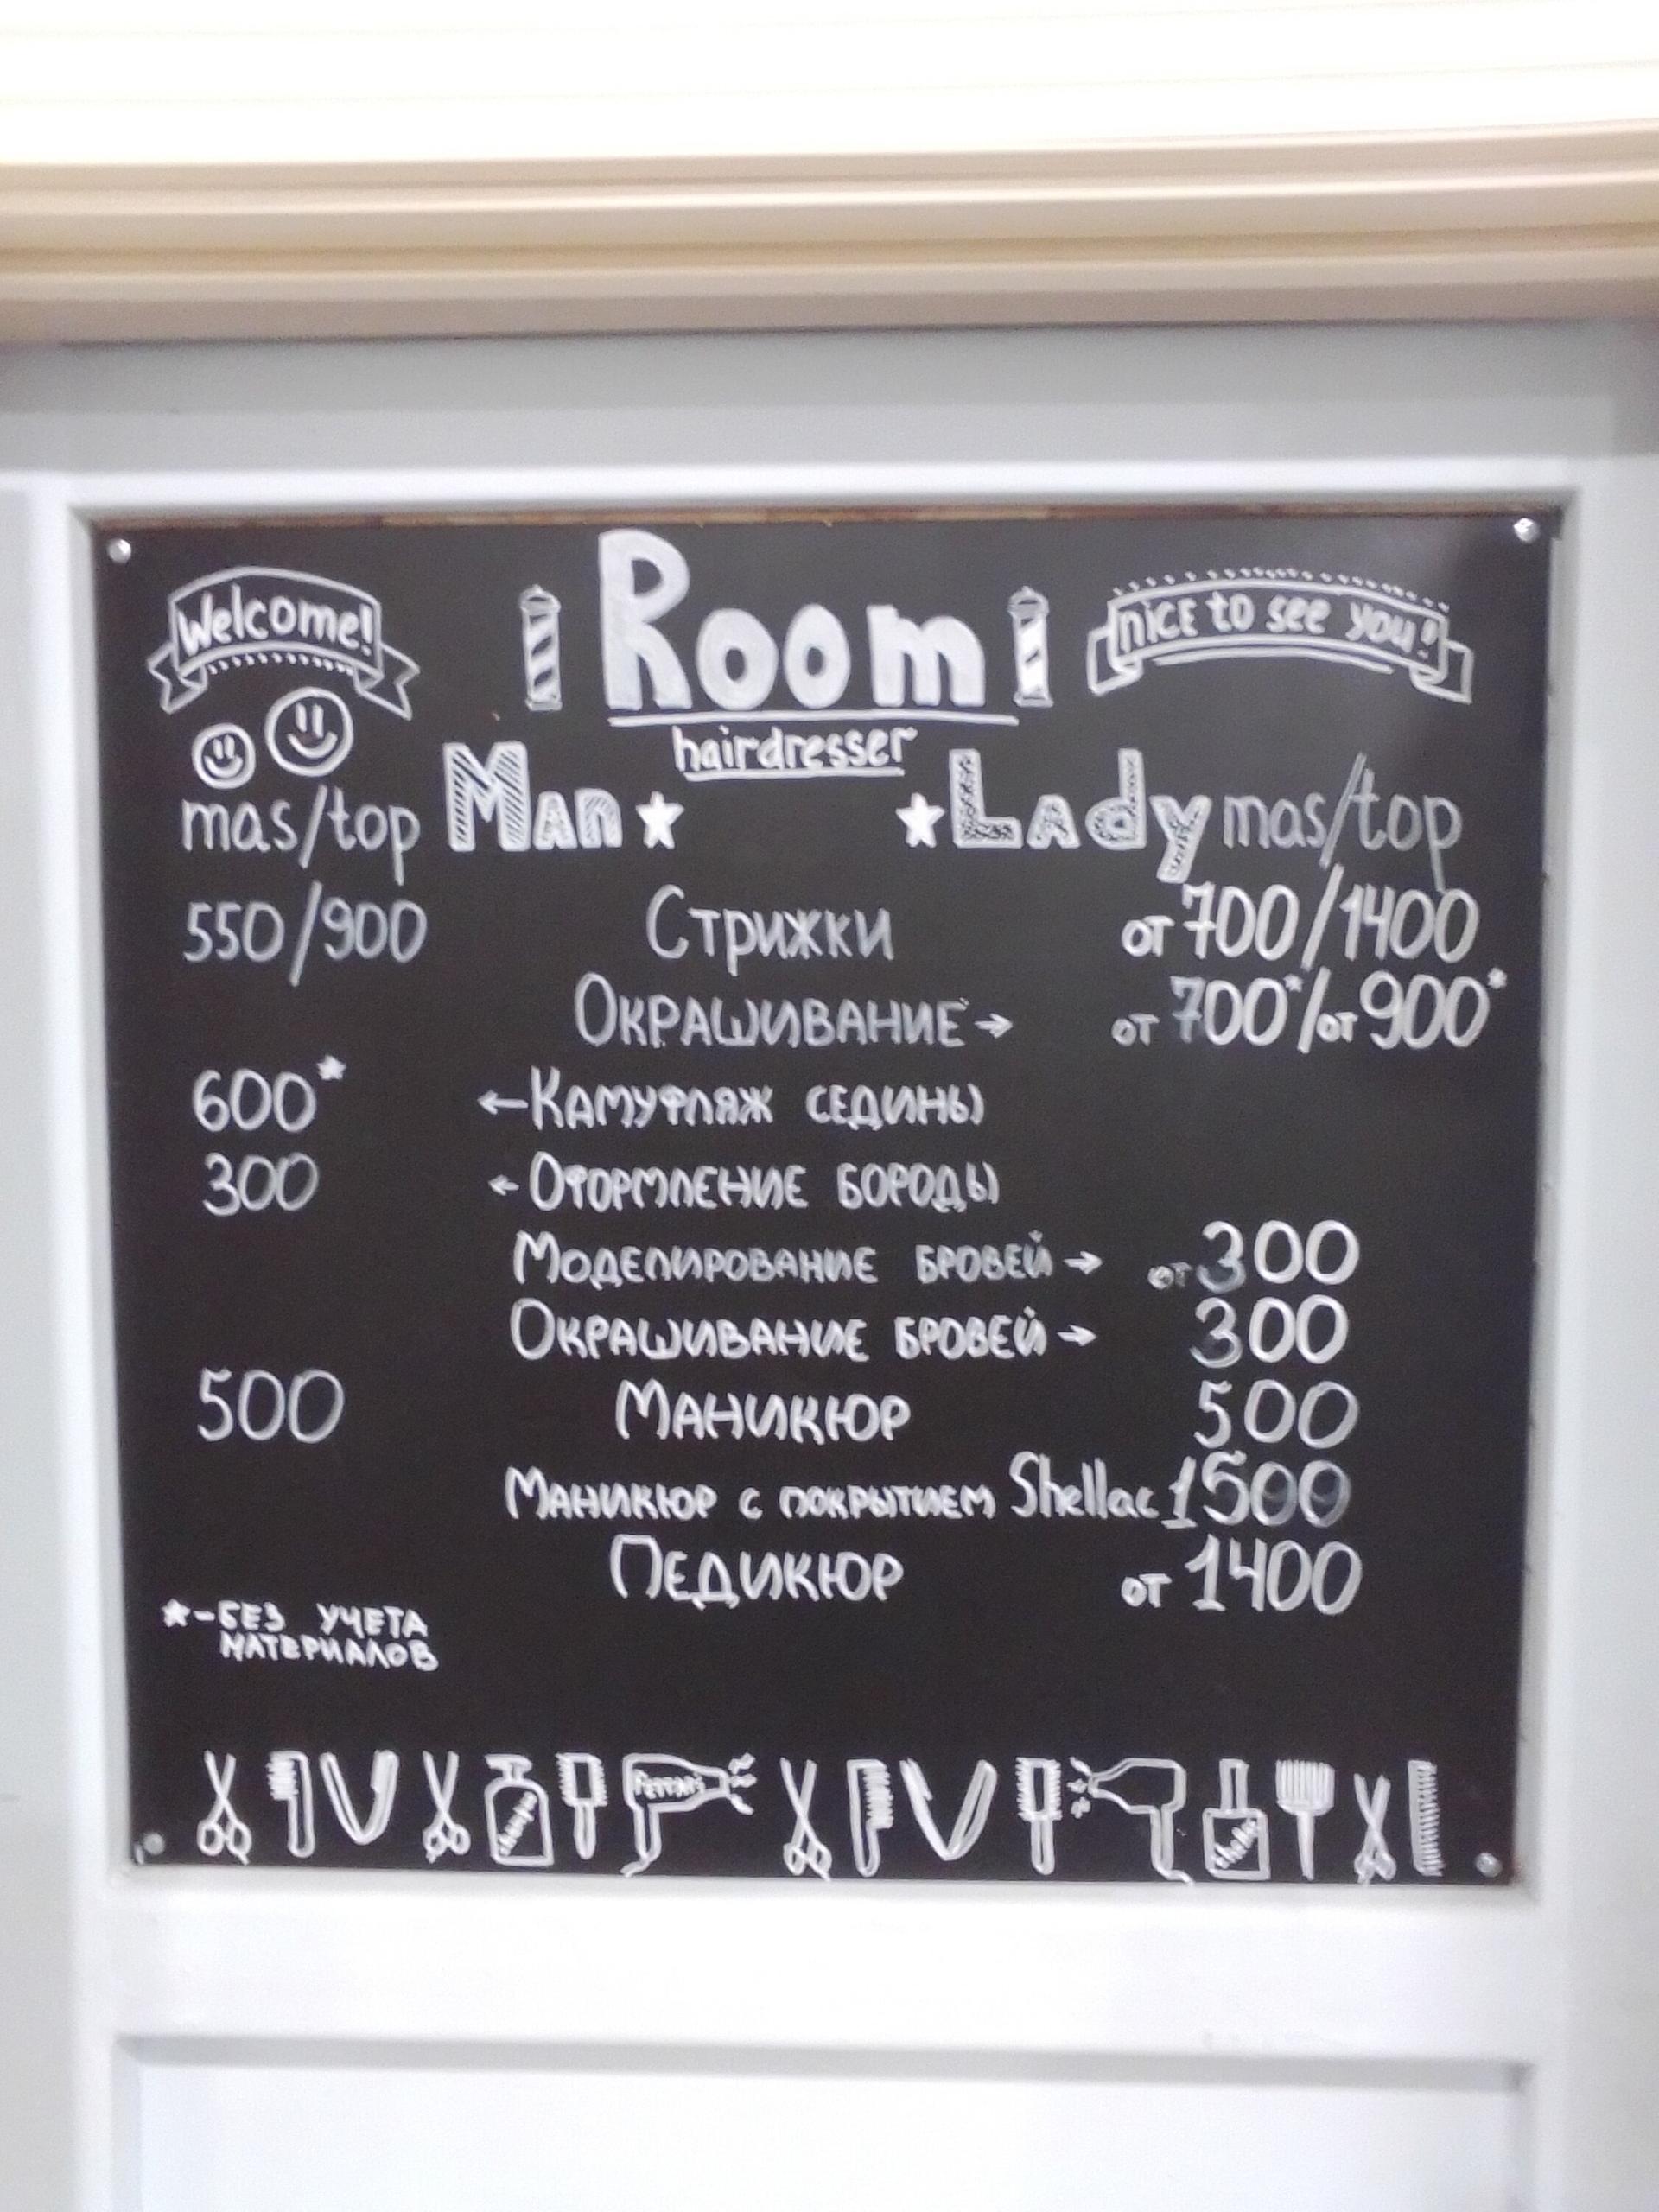 Welcome!
Room
nice to see you!!
hairdresser
mas/top Man Lady mas/top
550/900 Стрижки от 700/1400
Окрашивание → от 700*/от 900*
600* ← Камуфляж седины
300 ← Оформление бороды
Моделирование бровей → от 300
Окрашивание бровей → 300
500 Маникюр 500
Маникюр с покрытием Shellac 1500
Педикюр от 1400
★ - БЕЗ УЧЕТА
МАТЕРИАЛОВ